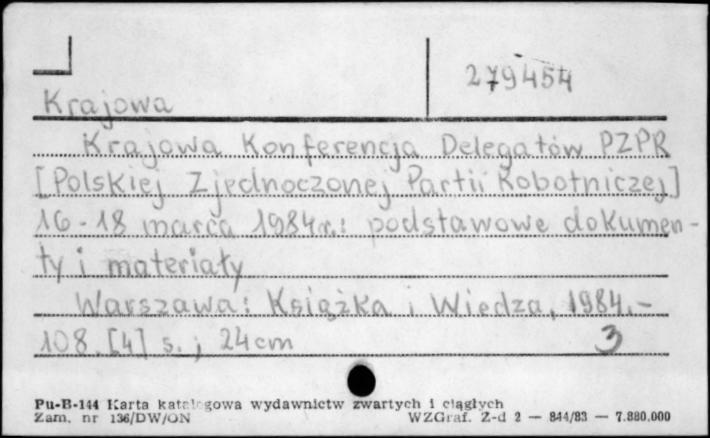 279454
Krajowa
Krajowa Konferencja Delegatów PZPR
[Polskiej Zjednoczonej Partii Robotniczej]
16-18 marca 1984r.: podstawowe dokumen-
ty i materiały
Warszawa: Książka i Wiedza, 1984.-
108, [4] s. ; 24cm 3
Pu-B-144 Karta katalogowa wydawnictw zwartych i ciągłych
Zam. nr 136/DW/ON WZGraf. Z-d 2 — 844/83 — 7.880.000